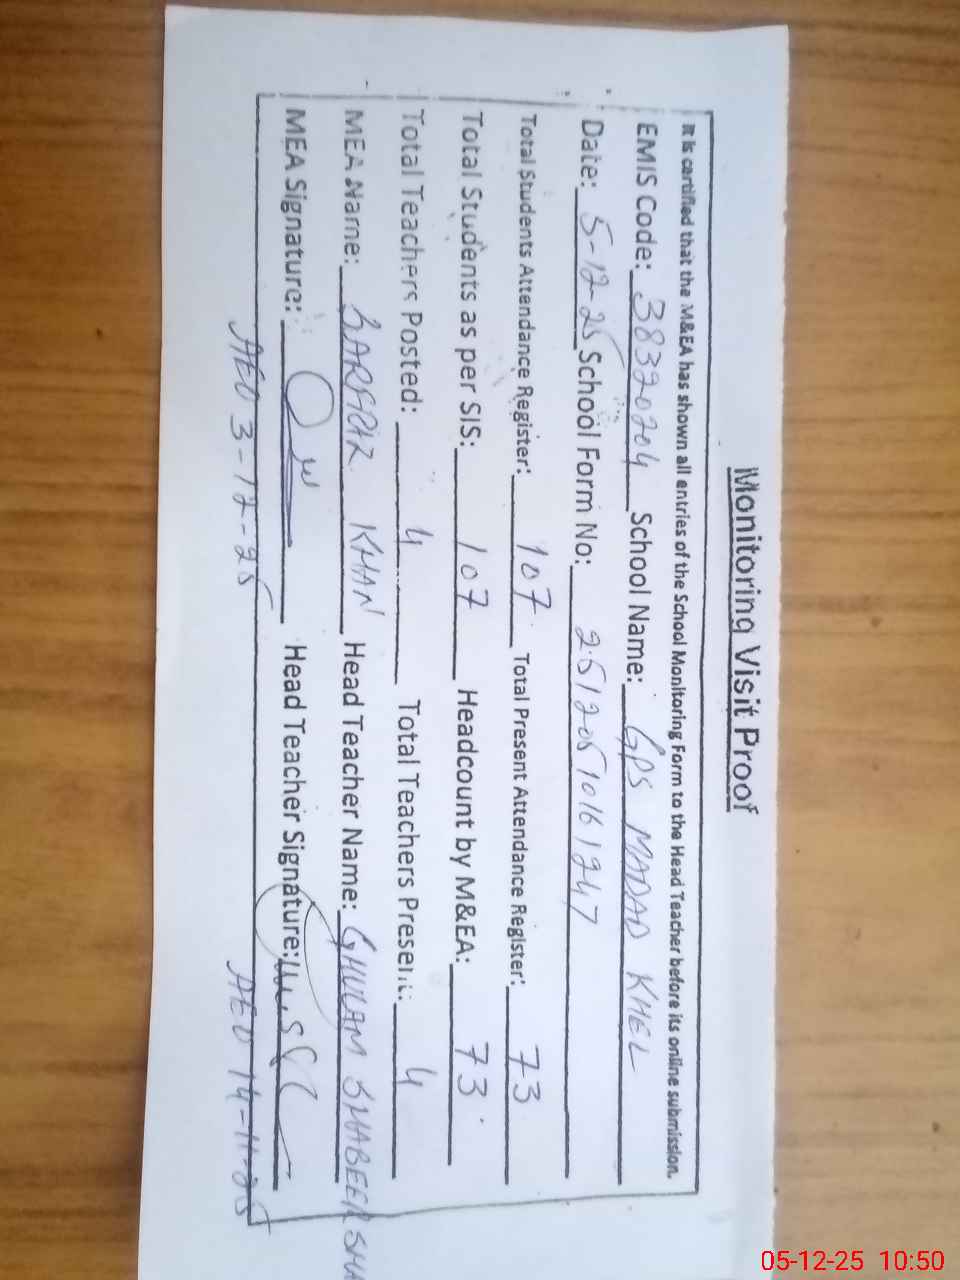 Monitoring Visit Proof
It is certified that the M&EA has shown all entries of the School Monitoring Form to the Head Teacher before its online submission.
EMIS Code: 38320204 School Name: GPS MADAD KHEL
Date: 5-12-25 School Form No: 25120510161247
Total Students Attendance Register: 107 Total Present Attendance Register: 73
Total Students as per SIS: 107 Headcount by M&EA: 73
Total Teachers Posted: 4 Total Teachers Present: 4
MEA Name: SARFRAZ KHAN Head Teacher Name: GHULAM SHABEER SHA
MEA Signature: Head Teacher Signature:
AEO 3-12-25 AEO 14-11-25
05-12-25 10:50